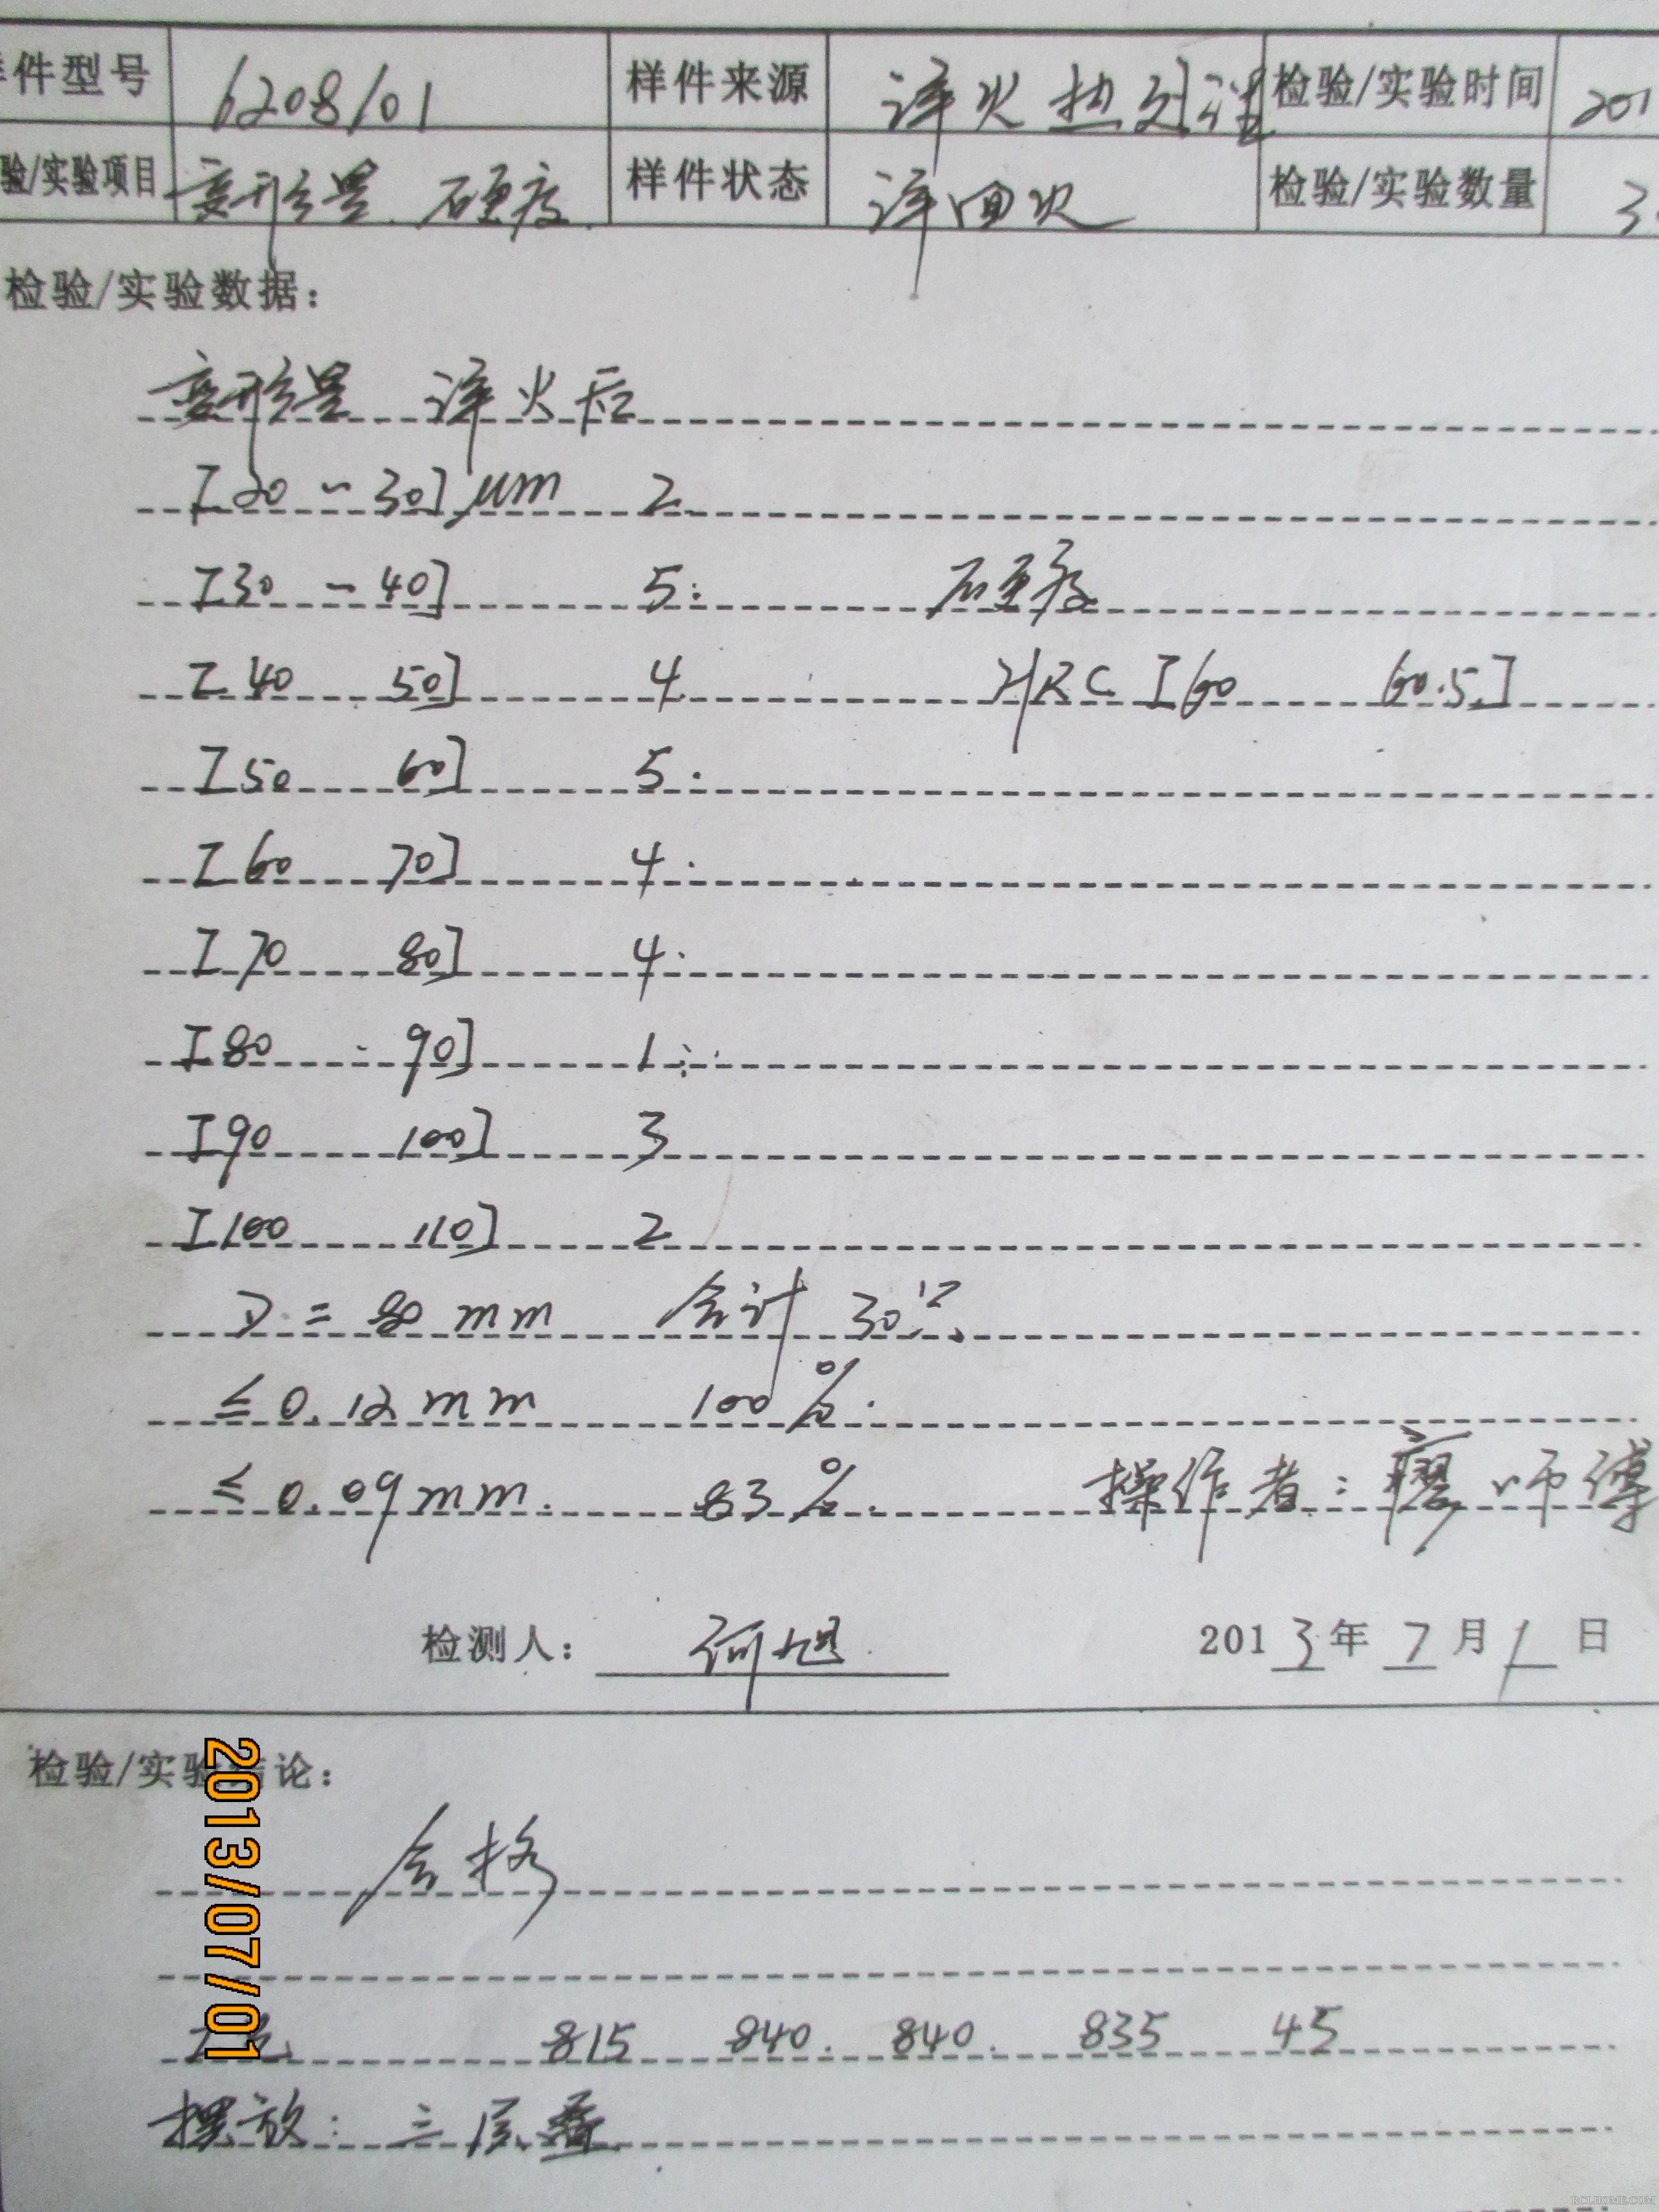 件型号 6208/01 样件来源 淬火热处理 检验/实验时间 201
验/实验项目 变形量、硬度 样件状态 淬回火 检验/实验数量 3
检验/实验数据：
变形量 淬火后
[20 ~ 30] μm 2
[30 - 40] 5. 硬度
[40 50] 4 HRC [60 60.5]
[50 60] 5.
[60 70] 4.
[70 80] 4.
[80 - 90] 1.
[90 100] 3
[100 110] 2
D = 80 mm 合计 30只
≤ 0.12 mm 100%.
≤ 0.09 mm. 83%. 操作者：廖师傅
检测人： 何旭 2013年 7月 1日
检验/实验结论：
合格
815 840. 840. 835 45
摆放： 三层叠
2013/07/01
RCLHOME.COM